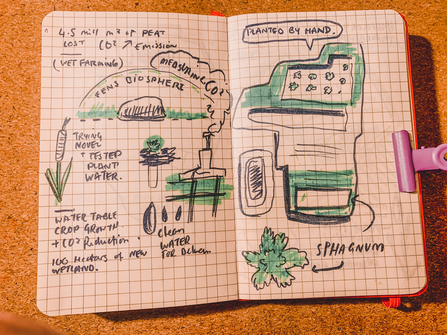 4.5 mill m³ of PEAT
LOST CO² ↗ EMISSION
(WET FARMING)
MEASURING CO²
FENS BIOSPHERE
TRYING
NOVEL
+ TESTED
PLANT
WATER.
WATER TABLE
CROP GROWTH
+ CO² REDUCTION
100 Hectars of NEW
WETLAND.
Clean
WATER
FOR
PLANTED BY HAND.
SPHAGNUM